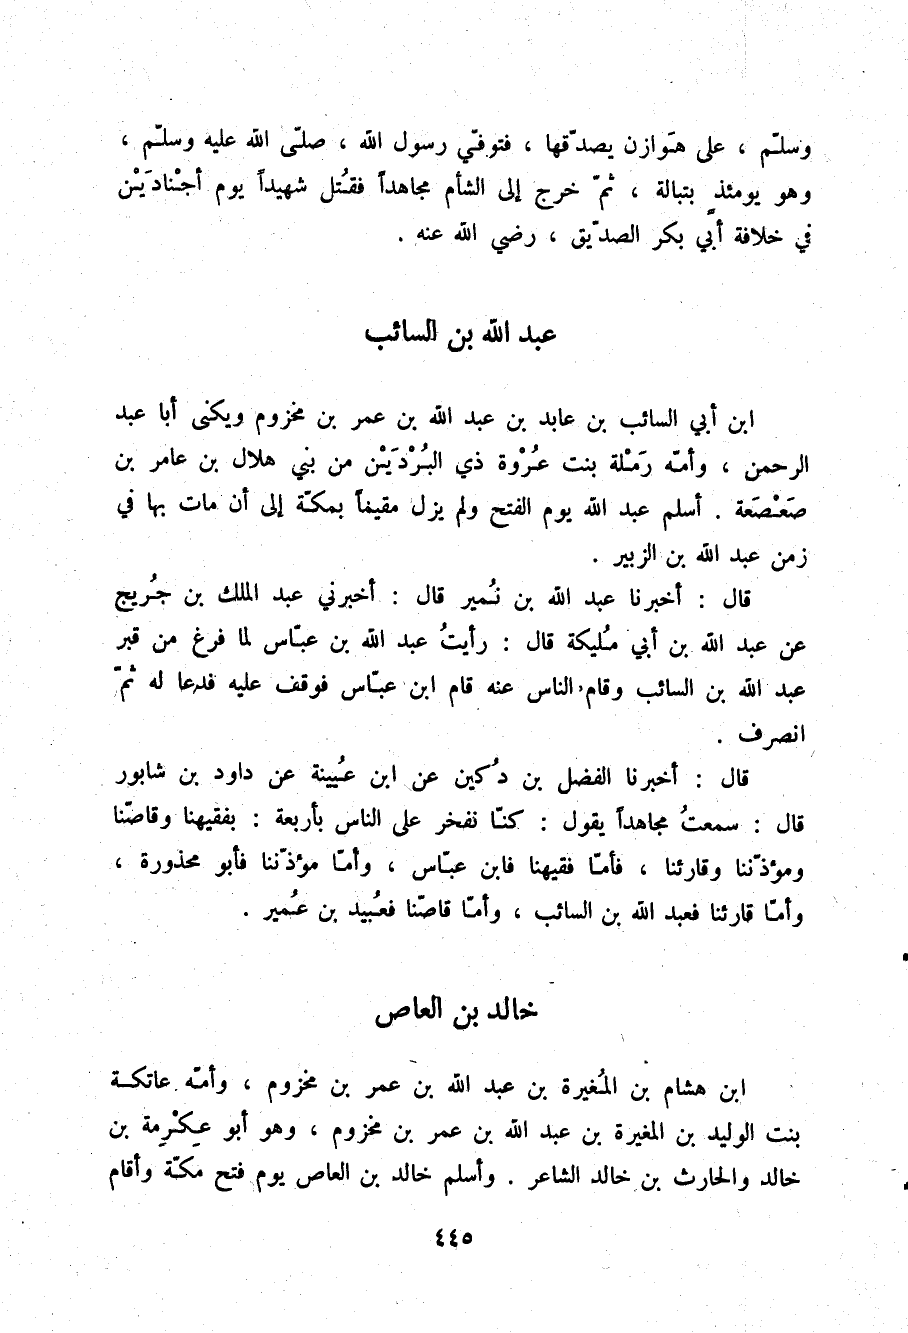 وسلّم ، على هَوازن يصدّقها ، فتوفّي رسول الله ، صلّى الله عليه وسلّم ،
وهو يومئذٍ بتبالة ، ثمّ خرج إلى الشأم مجاهداً فقُتل شهيداً يوم أجْنادَيْن
في خلافة أبي بكر الصدّيق ، رضي الله عنه .
عبد الله بن السائب
ابن أبي السائب بن عابد بن عبد الله بن عمر بن مخزوم ويكنى أبا عبد
الرحمن ، وأمّه رَمْلة بنت عُرْوة ذي البُرْدَيْن من بني هلال بن عامر بن
صَعْصَعة . أسلم عبد الله يوم الفتح ولم يزل مقيماً بمكّة إلى أن مات بها في
زمن عبد الله بن الزبير .
قال : أخبرنا عبد الله بن نُمير قال : أخبرني عبد الملك بن جُريج
عن عبد الله بن أبي مُليكة قال : رأيتُ عبد الله بن عبّاس لما فرغ من قبر
عبد الله بن السائب وقام الناس عنه قام ابن عبّاس فوقف عليه فدعا له ثمّ
انصرف .
قال : أخبرنا الفضل بن دُكين عن ابن عُيينة عن داود بن شابور
قال : سمعتُ مجاهداً يقول : كنّا نفخر على الناس بأربعة : بفقيهنا وقاصّنا
ومؤذّننا وقارئنا ، فأمّا فقيهنا فابن عبّاس ، وأمّا مؤذّننا فأبو محذورة ،
وأمّا قارئنا فعبد الله بن السائب ، وأمّا قاصّنا فعُبيد بن عُمير .
خالد بن العاص
ابن هشام بن المُغيرة بن عبد الله بن عمر بن مخزوم ، وأمّه عاتكة
بنت الوليد بن المغيرة بن عبد الله بن عمر بن مخزوم ، وهو أبو عِكْرِمة بن
خالد والحارث بن خالد الشاعر . وأسلم خالد بن العاص يوم فتح مكّة وأقام
٤٤٥